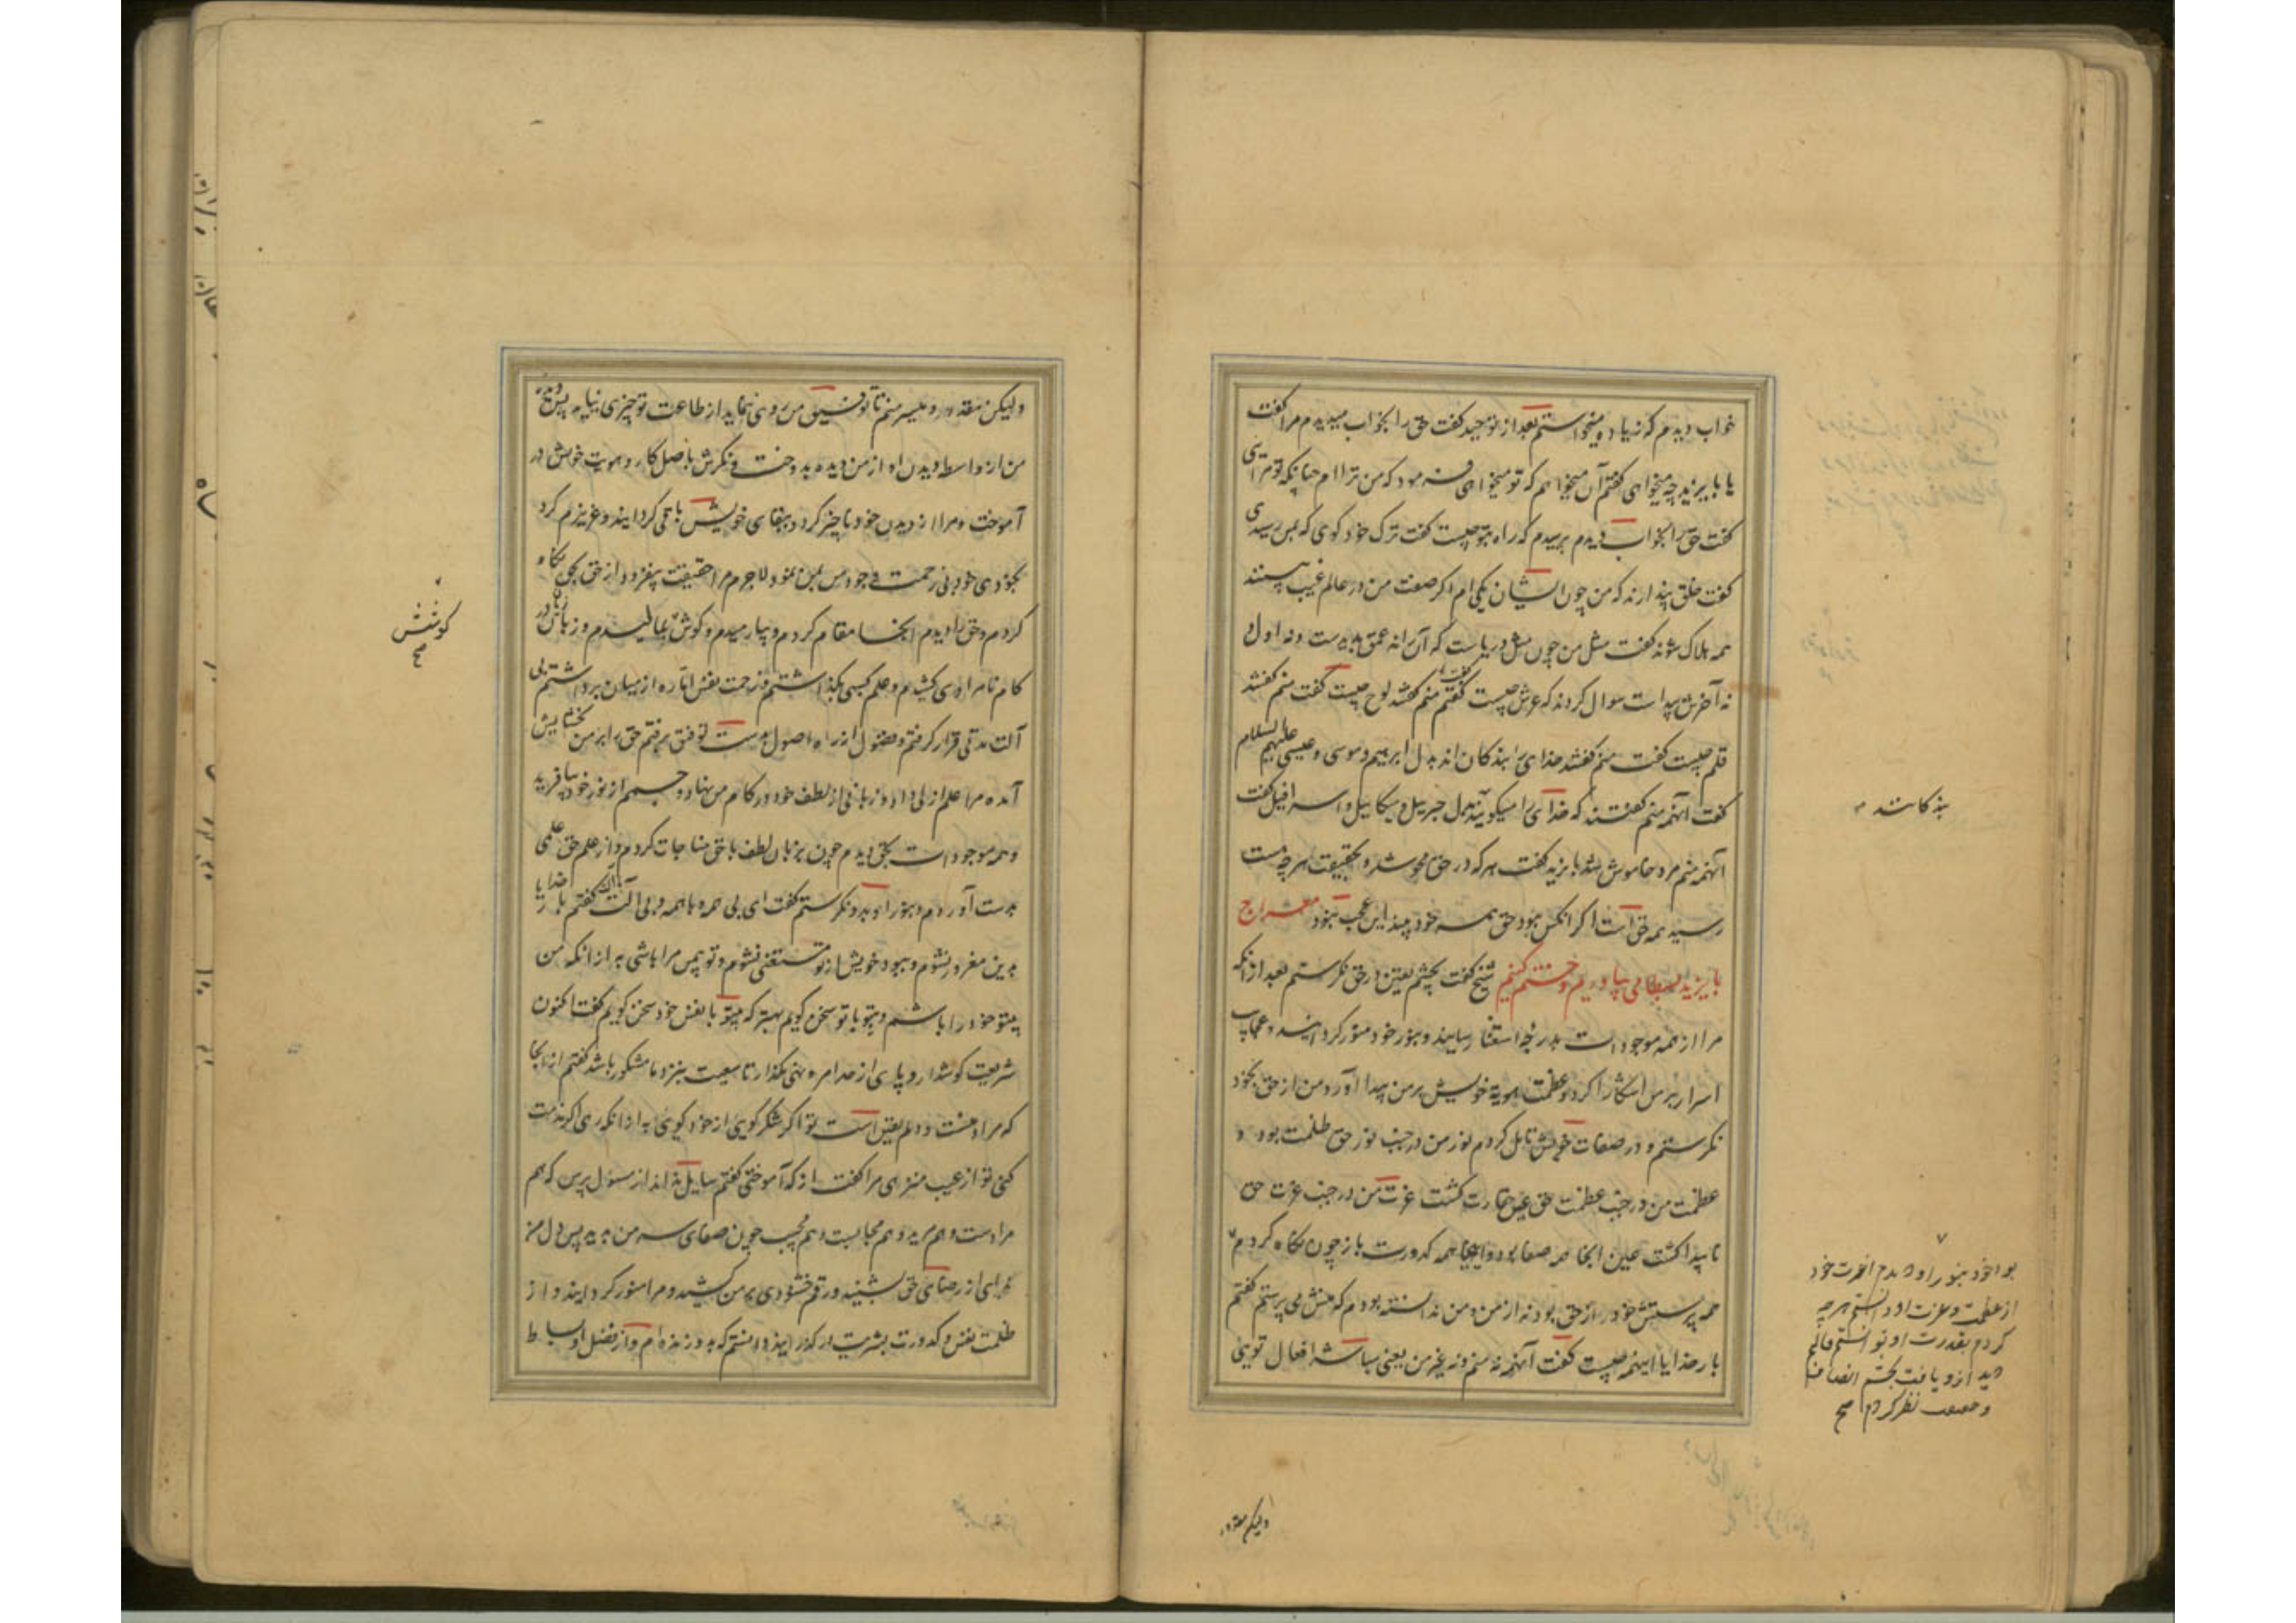 خواب دیدم که زیادت میخواستم بعد از توحید گفت حق را بخواب میدیدم مرا گفت
یا بایزید چه میخواهی گفتم آن میخواهم که تو میخواهی فرمود که من ترا ام چنانکه تو مرایی
گفت حق را بخواب دیدم پرسیدم که راه بتو چیست گفت ترک خود کوی که بمن رسیدی
گفت خلق پندارند که من چون ایشان یکی ام اگر صفت من در عالم غیب بینند
همه هلاک شوند گفت مثل من چون مثل دریاست که آن را نه عمق پدیدست و نه اول و
نه آخرش پیداست سوال کردند که عرش چیست گفتم منم گفتند لوح چیست گفت منم گفتند
قلم چیست گفت منم گفتند خدای را بندکان اند بدل ابرهیم و موسی و عیسی علیهم السلام
گفت آنهمه منم گفتند که خدای را میکویند بدل جبرییل و میکاییل و اسرافیل گفت
آنهمه منم مرد خاموش شد بایزید گفت هر که در حق محو شد و بحقیقت هر چه هست
رسید همه حق است اگر آنکس نبود حق همه خود بیند این عجب نبود معراج
بایزید بسطامی بیاوریم و ختم کنیم شیخ گفت بچشم یقین در حق نکرستم بعد از آنکه
مرا از همه موجودات بدرجه استغنا رسانید و بنور خود منور کردانید و عجایب
اسرار بر من آشکارا کرد و عظمت هویة خویش بر من پیدا آورد من از حق بخود
نکرستم و در صفات خویش تامل کردم نور من در جنب نور حق ظلمت بود و
عظمت من در جنب عظمت حق عین حقارت کشت عزت من در جنب عزت حق
ناپیدا کشت عین انجا همه صفا بود و اینجا همه کدورت باز چون نکاه کردم
همه پرستش خود از حق بود نه از من و من ندانسته بودم که منش می پرستم گفتم
بار خدایا اینهمه چیست گفت آنهمه نه منم و نه غیر من یعنی مباشر افعال تویی
بندکانند
بود خود بنور او دیدم عزت خود
از عظمت و عزت او دانستم هر چه
کردم بقدرت او توانستم
دید ازو یافت بچشم انصاف
و حقیقت نظر کردم صح
ولیکن مقدر
ولیکن مقدر و میسر منم تا توفیق من روی ننماید از طاعت تو چیزی نیاید پس دیده
من از واسطه دیدن او از من دیده بدوخت و نکرش باصل کار و هویت خویش در
آموخت و مرا از دیدن خود ناچیز کرد و ببقای خویش باقی کردانید و عزیزم کرد
بخودی خود بی زحمت وجود من بمن نمود لاجرم مرا حقیقت بیفزود از حق بحق نکاه
کردم و حق را دیدم انجا مقام کردم و بیارمیدم و کوش بمالیدم و زبان در
کام نامرادی کشیدم و علم کسبی بکذاشتم و زحمت نفس اماره از میان برداشتم بی
آلت مدتی قرار کرفتم و فضول از راه اصول بدست توفیق برفتم حق را بر من بخشایش
آمد مرا علم ازلی داد و زبانی از لطف خود در کام من نهاد و چشمم از نور خود بیافرید
و همه موجودات بحق دیدم چون بزبان لطف با حق مناجات کردم و از علم حق علمی
بدست آوردم و بنور او بدو نکرستم گفت ای بی همه و با همه و بی آلت گفتم بار خدایا
بدین مغرور نشوم و ببود خویش از تو مستغنی نشوم و تو بی من مرا باشی به از انکه من
بیتو خود را باشم و بتو با تو سخن کویم بهتر که بیتو با نفس خود سخن کویم گفت اکنون
شریعت کوش دار و پای از حد امر و نهی مکذار تا سعیت بنزد ما مشکور باشد گفتم از انجا
که مرا دینست و دلم یقین است تو اکر شکر کویی از خود کویی به از انکه رهی اکر مذمت
کنی تو از عیب منزهی مرا گفت از که آموختی گفتم سایل به داند از مسول پرس که هم
مرادست و هم مرید و هم مجابست و هم مجیب چون صفای سر من بدید پس دل من
ندایی از رضای حق بشنید و رقم خشنودی بر من کشید و مرا منور کردانید و از
ظلمت نفس و کدورت بشریت در کذرانید دانستم که بدو زنده ام و از فضل او بساط
کوشش
صح